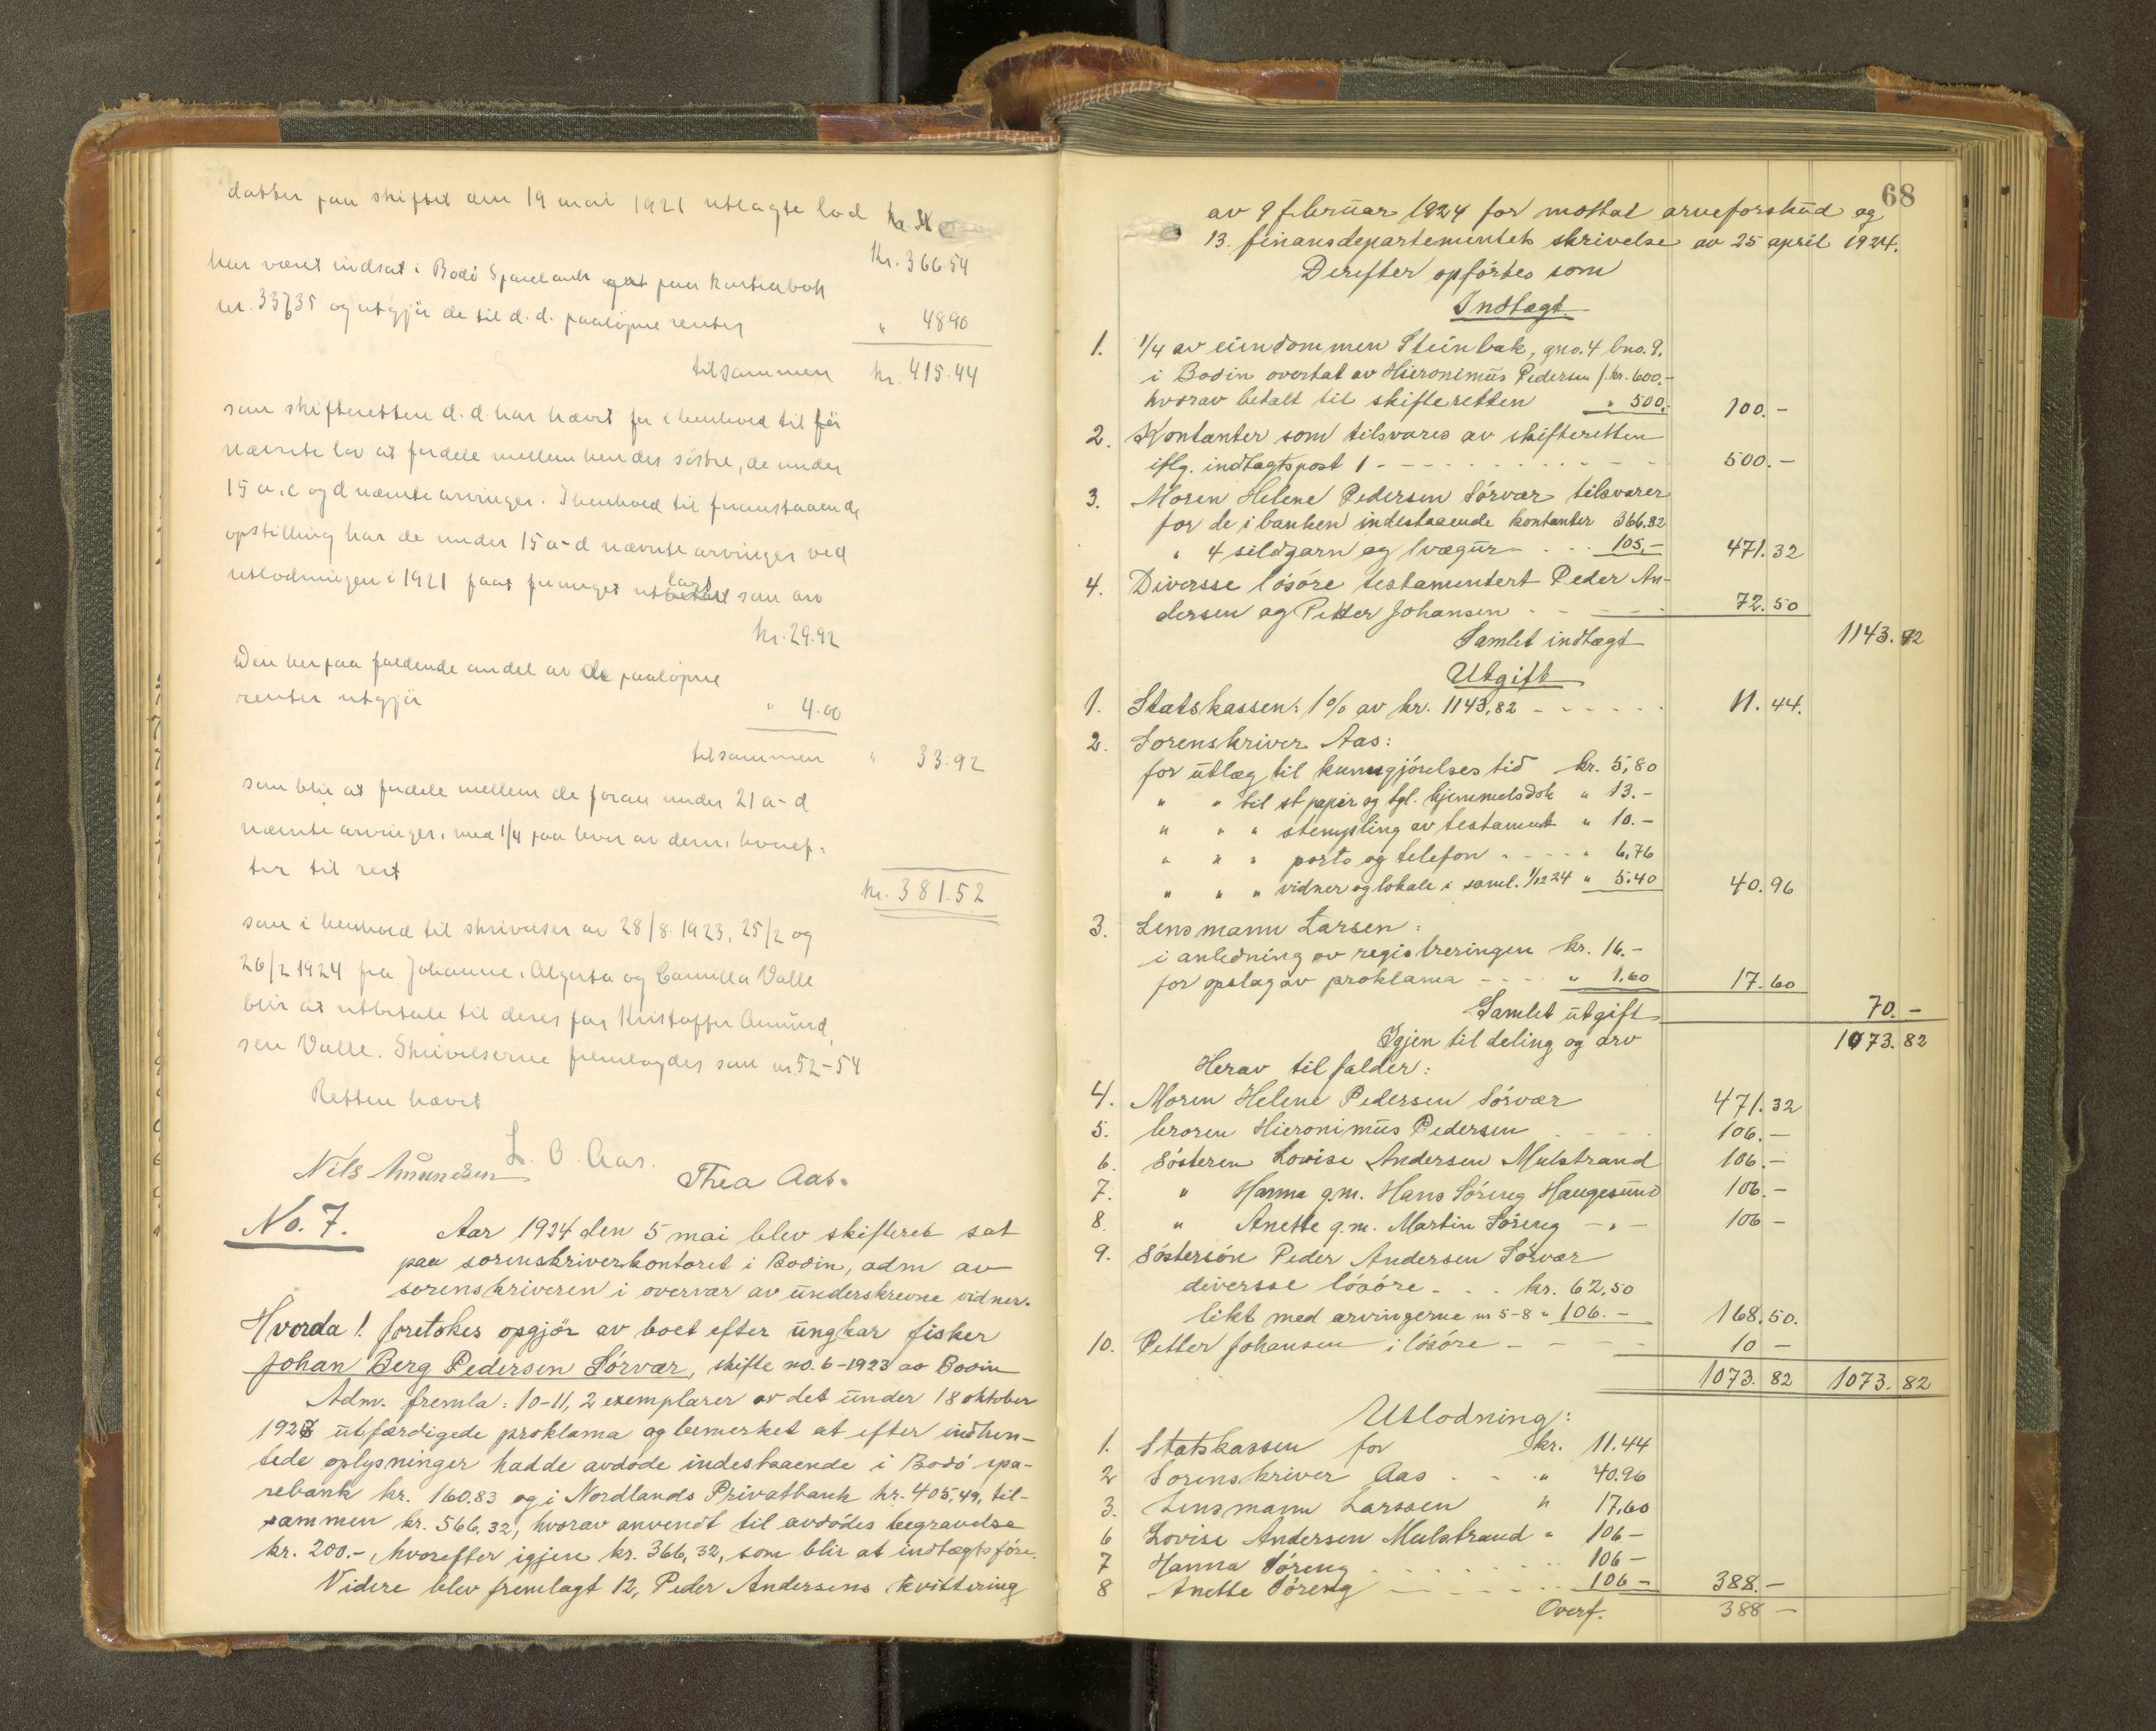 datter paa skiftet den 19 mai 1921 utlagte lod
Kr. 366.54
har været indsat i Bodö Sparebank paa kontrabok
nr. 33735 og utgjör de til d.d. paalöpne renter " 48.90
tilsammen kr. 415.44
som skifteretten d.d. har hævet for i henhold til før
nævnte lov at fordele mellem hendes söstre, de under
15 a, c og d nævnte arvinger. I henhold til foranstaaende
opstilling har de under 15 a-d nævnte arvinger ved
utlodningen i 1921 faat formeget utlagt som arv
kr. 29.92
Den herpaa faldende andel av de paalöpne
renter utgjör " 4.00
tilsammen " 33.92
som blir at fordele mellem de foran under 21 a-d
nævnte arvinger, med 1/4 paa hver av dem, hvoref-
ter til rest kr. 381.52
som i henhold til skrivelser av 28/8 1923, 25/2 og
26/2 1924 fra Johanne, Algusta og Camilla Valle
blir at utbetale til deres far Kristoffer Amund
sen Valle. Skrivelserne fremlagdes som nr. 52-54
Retten hævet
L. O. Aas.
Nils Amundsen Thea Aas.
No. 7. Aar 1924 den 5 mai blev skifteret sat
paa sorenskriverkontoret i Bodin, adm av
sorenskriveren i overvær av underskrevne vidner.
Hvorda! foretokes opgjör av boet efter ungkar fisker
Johan Berg Pedersen Sörvær, skifte no. 6-1923 av Bodin
Adm. fremla: 10-11, 2 exemplarer av det under 18 oktober
1923 utfærdigede proklama og bemerket at efter indhen-
tede oplysninger hadde avdöde indestaaende i Bodö spa-
rebank kr. 160.83 og i Nordlands Privatbank kr. 405,49, til-
sammen kr. 566,32, hvorav anvendt til avdödes begravelse
kr. 200.-, hvorefter igjen kr. 366,32, som blir at indtægtsföre.
Videre blev fremlagt 12, Peder Andersens kvittering
68
av 9 februar 1924 for mottat arveforskud og
13. finansdepartementets skrivelse av 25 april 1924.
Derefter opförtes som
Indtægt
1. 1/4 av eiendommen Steinbak, gno. 4 bno. 9.
i Bodin overtat av Hieronimus Pedersen f. kr. 600.-
hvorav betalt til skifteretten " 500.- 100.-
2. Kontanter som tilsvares av skifteretten
iflg. indtægtspost 1 - - - 500.-
3. Moren Helene Pedersen Sörvær tilsvarer
for de i banken indestaaende kontanter 366.32
" 4 sildgarn og lvægur - - 105,- 471.32
4. Diversse lösöre testamentert Peder An-
dersen og Petter Johansen - - - 72.50
Samlet indtægt 1143.82
Utgift
1. Statskassen: 1% av kr. 1143,82 - - - 11.44.
2. Sorenskriver Aas:
for utlæg til kunngjörelses tid kr. 5,80
" " til st papir og tgl. hjemmelsdok " 13.-
" " " stempling av testament " 10.-
" " " porto og telefon - - - " 6,76
" " " vidner og lokale i saml. 1/12 24 " 5.40 40.96
3. Lensmann Larsen:
i anledning av registreringen kr. 16.-
for opslag av proklama - - - " 1.60 17.60
Samlet utgift 70.-
Igjen til deling og arv 1073.82
Herav tilfalder:
4. Moren Helene Pedersen Sörvær 471.32
5. broren Hieronimus Pedersen 106.-
6. Sösteren Lovise Andersen Mulstrand 106.-
7. " Hanna g.m. Hans Söreng Haugesund 106.-
8. " Anette g.m. Martin Söreng - " - 106 -
9. Söstersön Peder Andersen Sörvær
diversse lösöre - - - kr. 62,50
likt med arvingerne nr 5-8 " 106.- 168.50.
10. Petter Johansen i lösöre - - - 10 -
1073.82 1073.82
Utlodning:
1. Statskassen for kr. 11.44
2 Sorenskriver Aas - - " 40.96
3. Lensmann Larssen " 17.60
6 Lovise Andersen Mulstrand " 106 -
7 Hanna Söreng 106 -
8 Anette Söreng - - - 106 - 388.-
Overf. 388 -